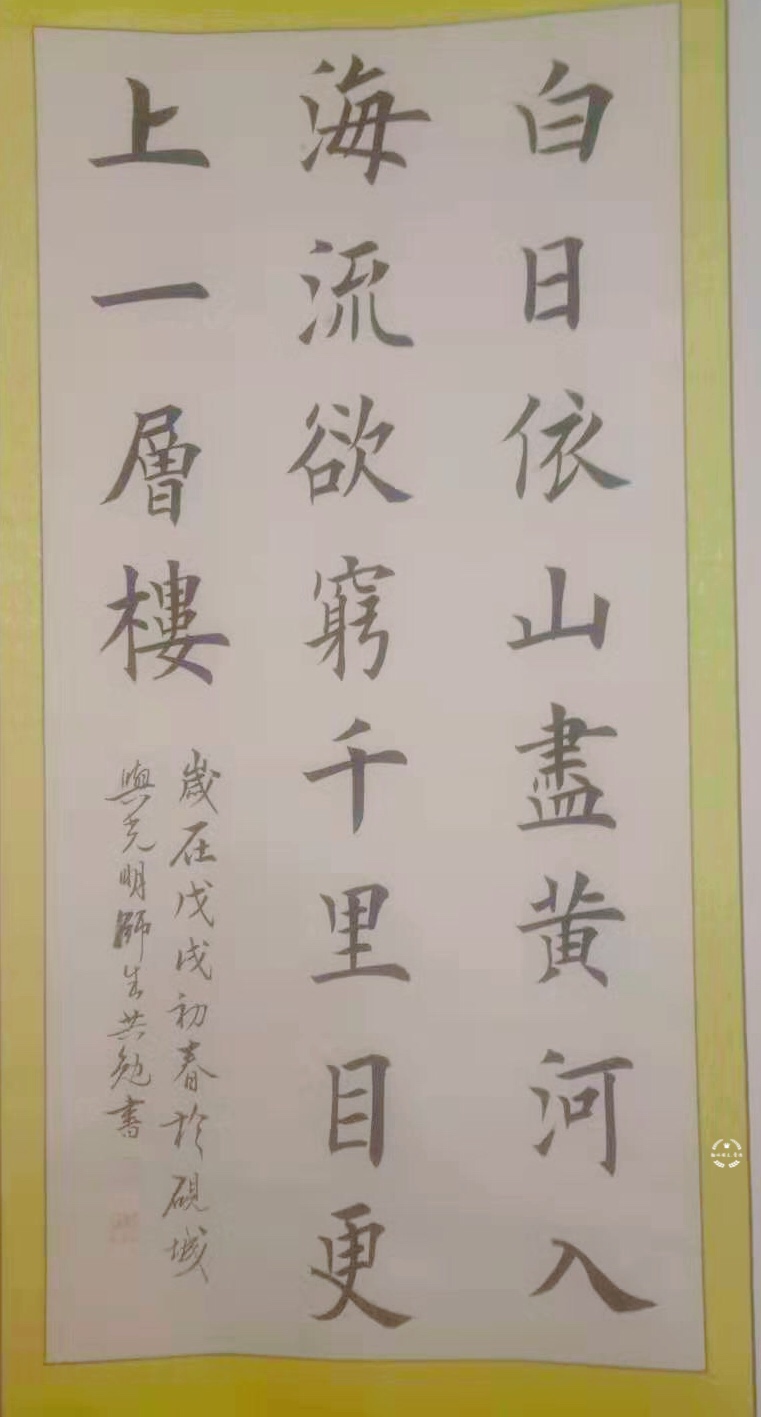 白日依山盡黃河入
海流欲窮千里目更
上一層樓
歲在戊戌初春於硯城
與光明師生共勉書